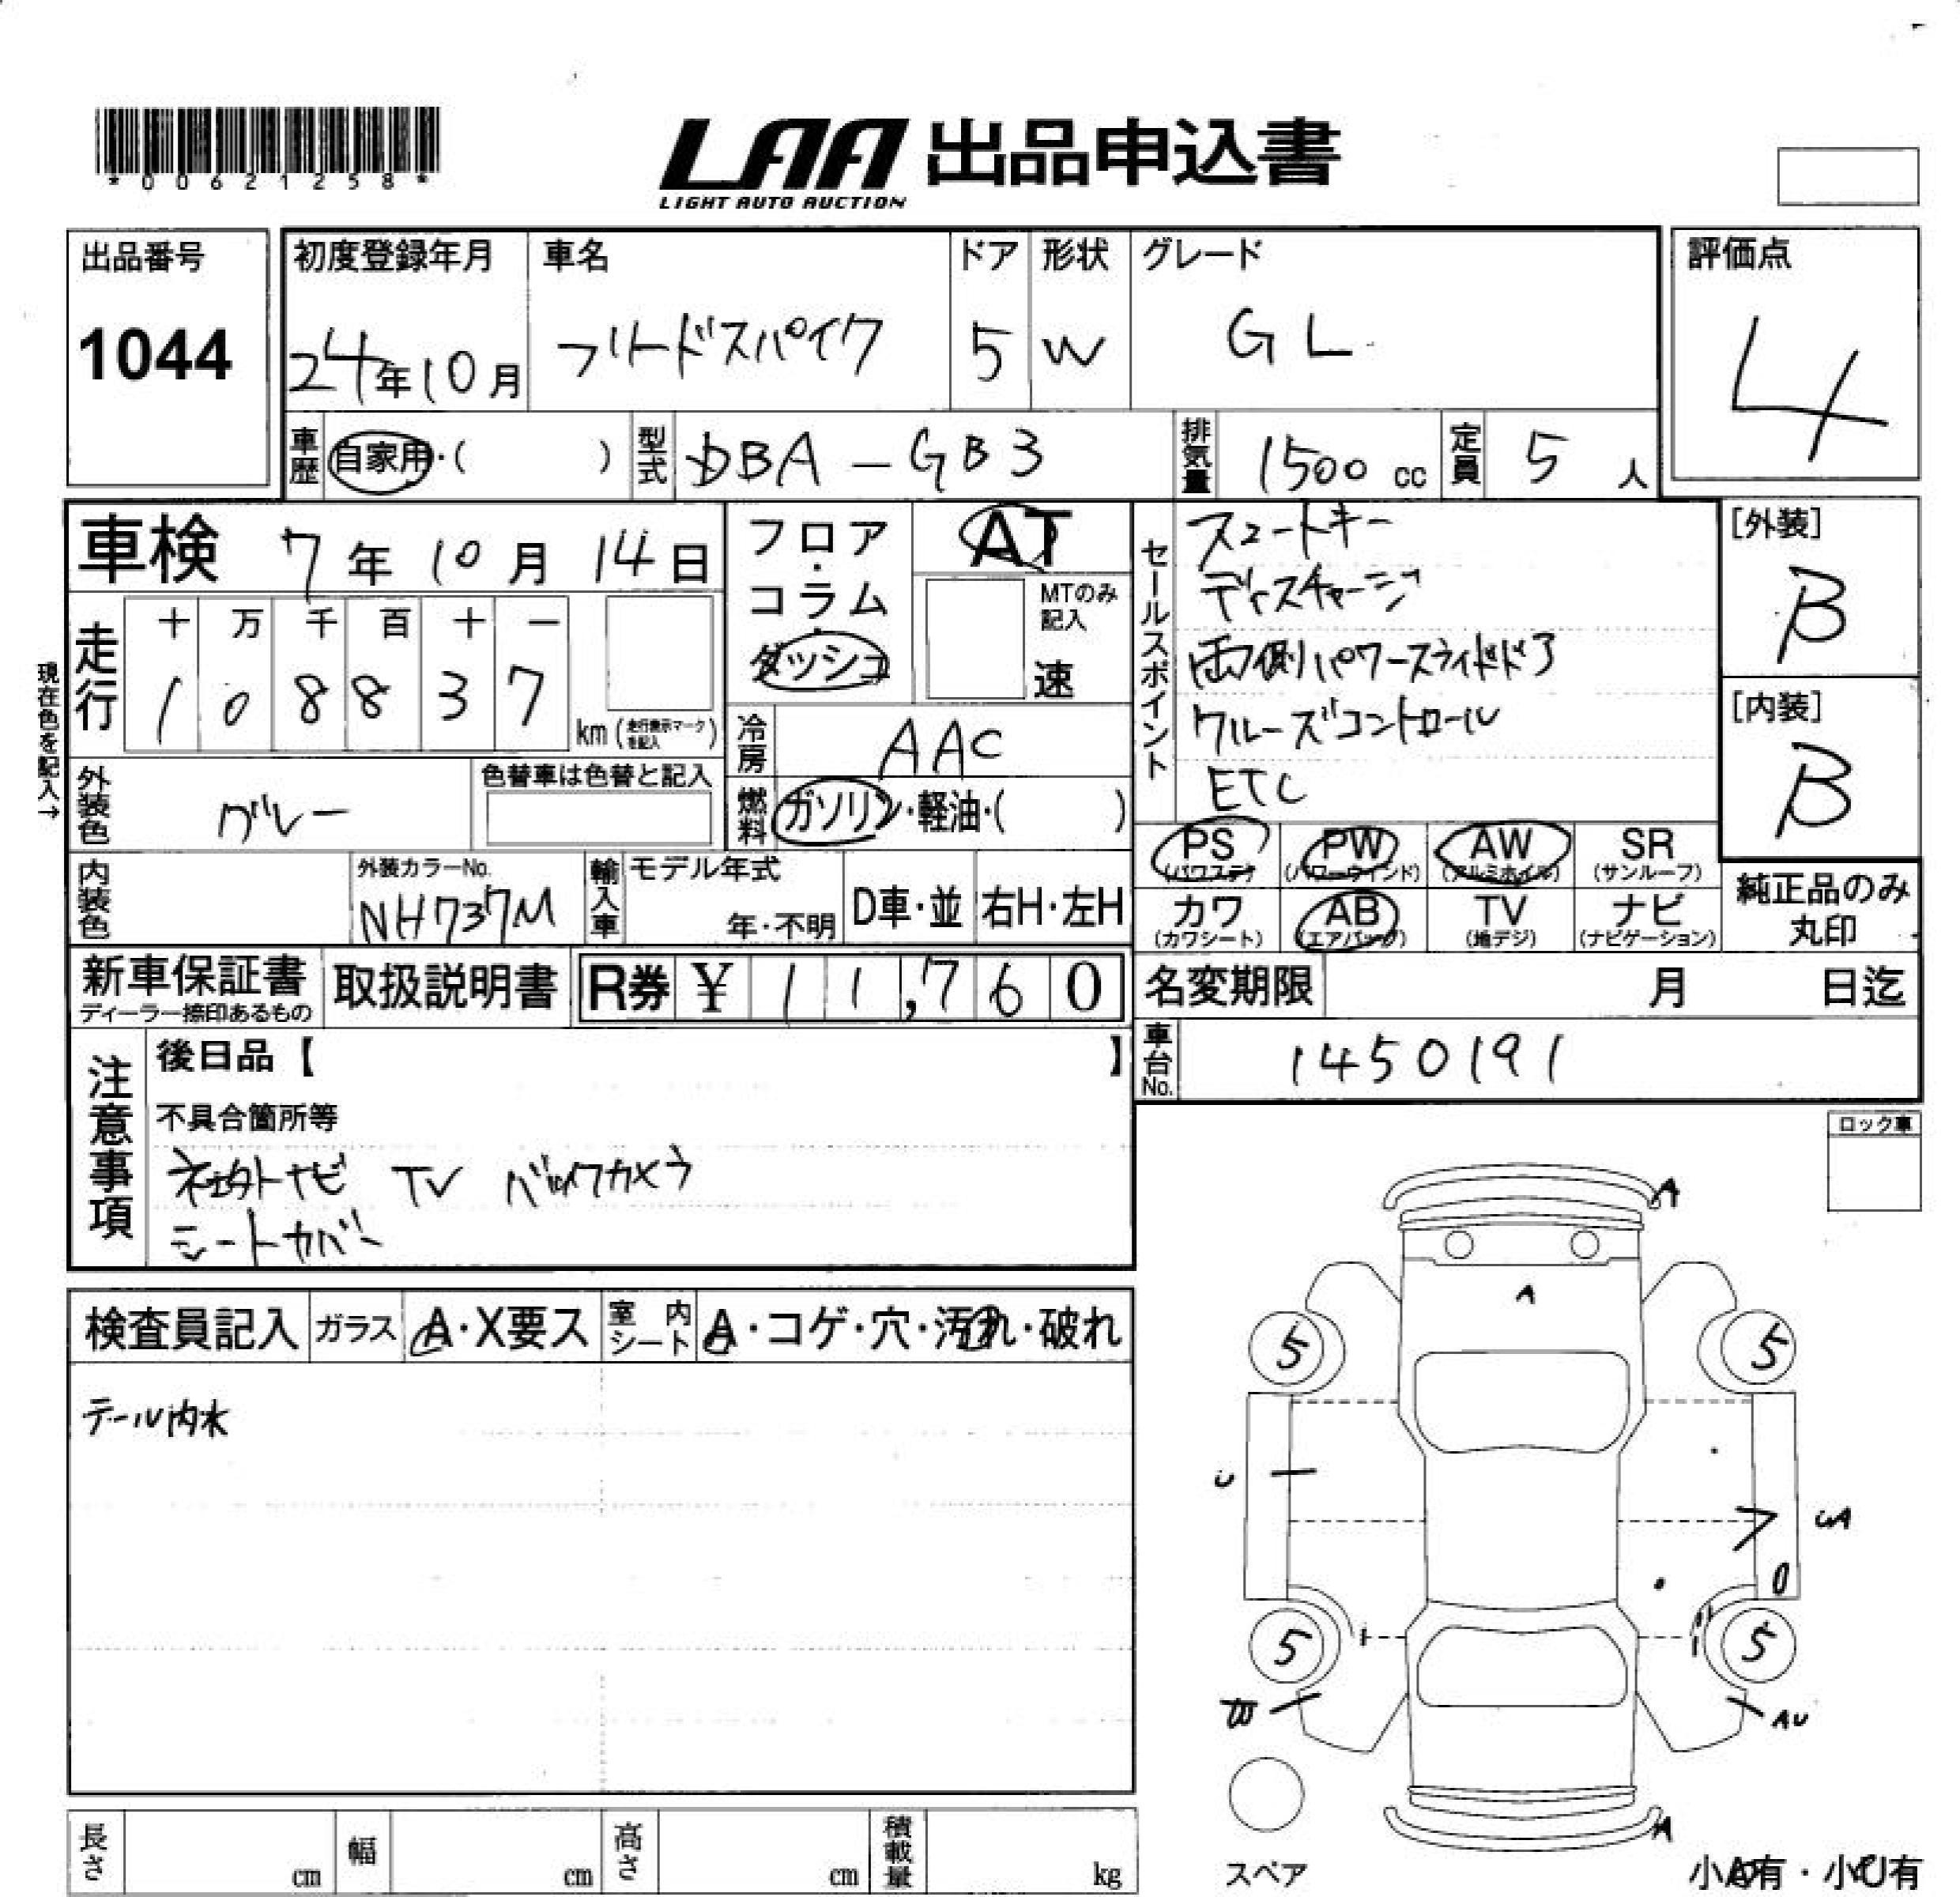 *00621258*
LAA 出品申込書
LIGHT AUTO AUCTION
出品番号
1044
初度登録年月
24年10月
車名
フリードスパイク
ドア
5
形状
W
グレード
GL
評価点
4
車歴 自家用・( )
型式 DBA-GB3
排気量 1500 cc
定員 5 人
車検 7年10月14日
フロア・コラム・ダッシュ
AT
MTのみ記入
速
セールスポイント
スマートキー
ディスチャージ
両側パワースライドドア
クルーズコントロール
ETC
[外装]
B
[内装]
B
現在色を記入→
走行
十 万 千 百 十 一
1 0 8 8 3 7
km (走行表示マークを記入)
冷房 AAC
燃料 ガソリン・軽油・( )
外装色 グレー
色替車は色替と記入
内装色
外装カラーNo.
NH737M
輸入車
モデル年式
年・不明
D車・並
右H・左H
PS (パワステ)
PW (パワーウインド)
AW (アルミホイル)
SR (サンルーフ)
カワ (カワシート)
AB (エアバッグ)
TV (地デジ)
ナビ (ナビゲーション)
純正品のみ
丸印
新車保証書
ディーラー捺印あるもの
取扱説明書
R券 ¥ 11,760
名変期限 月 日迄
車台No. 1450191
注意事項
後日品【 】
不具合箇所等
社外ナビ TV バックカメラ
シートカバー
ロック車
検査員記入
ガラス A・X要ス
室内シート A・コゲ・穴・汚れ・破れ
テール内水
A
A
5
5
U
UA
5
5
AU
A
スペア
小A有・小U有
長さ cm
幅 cm
高さ cm
積載量 kg